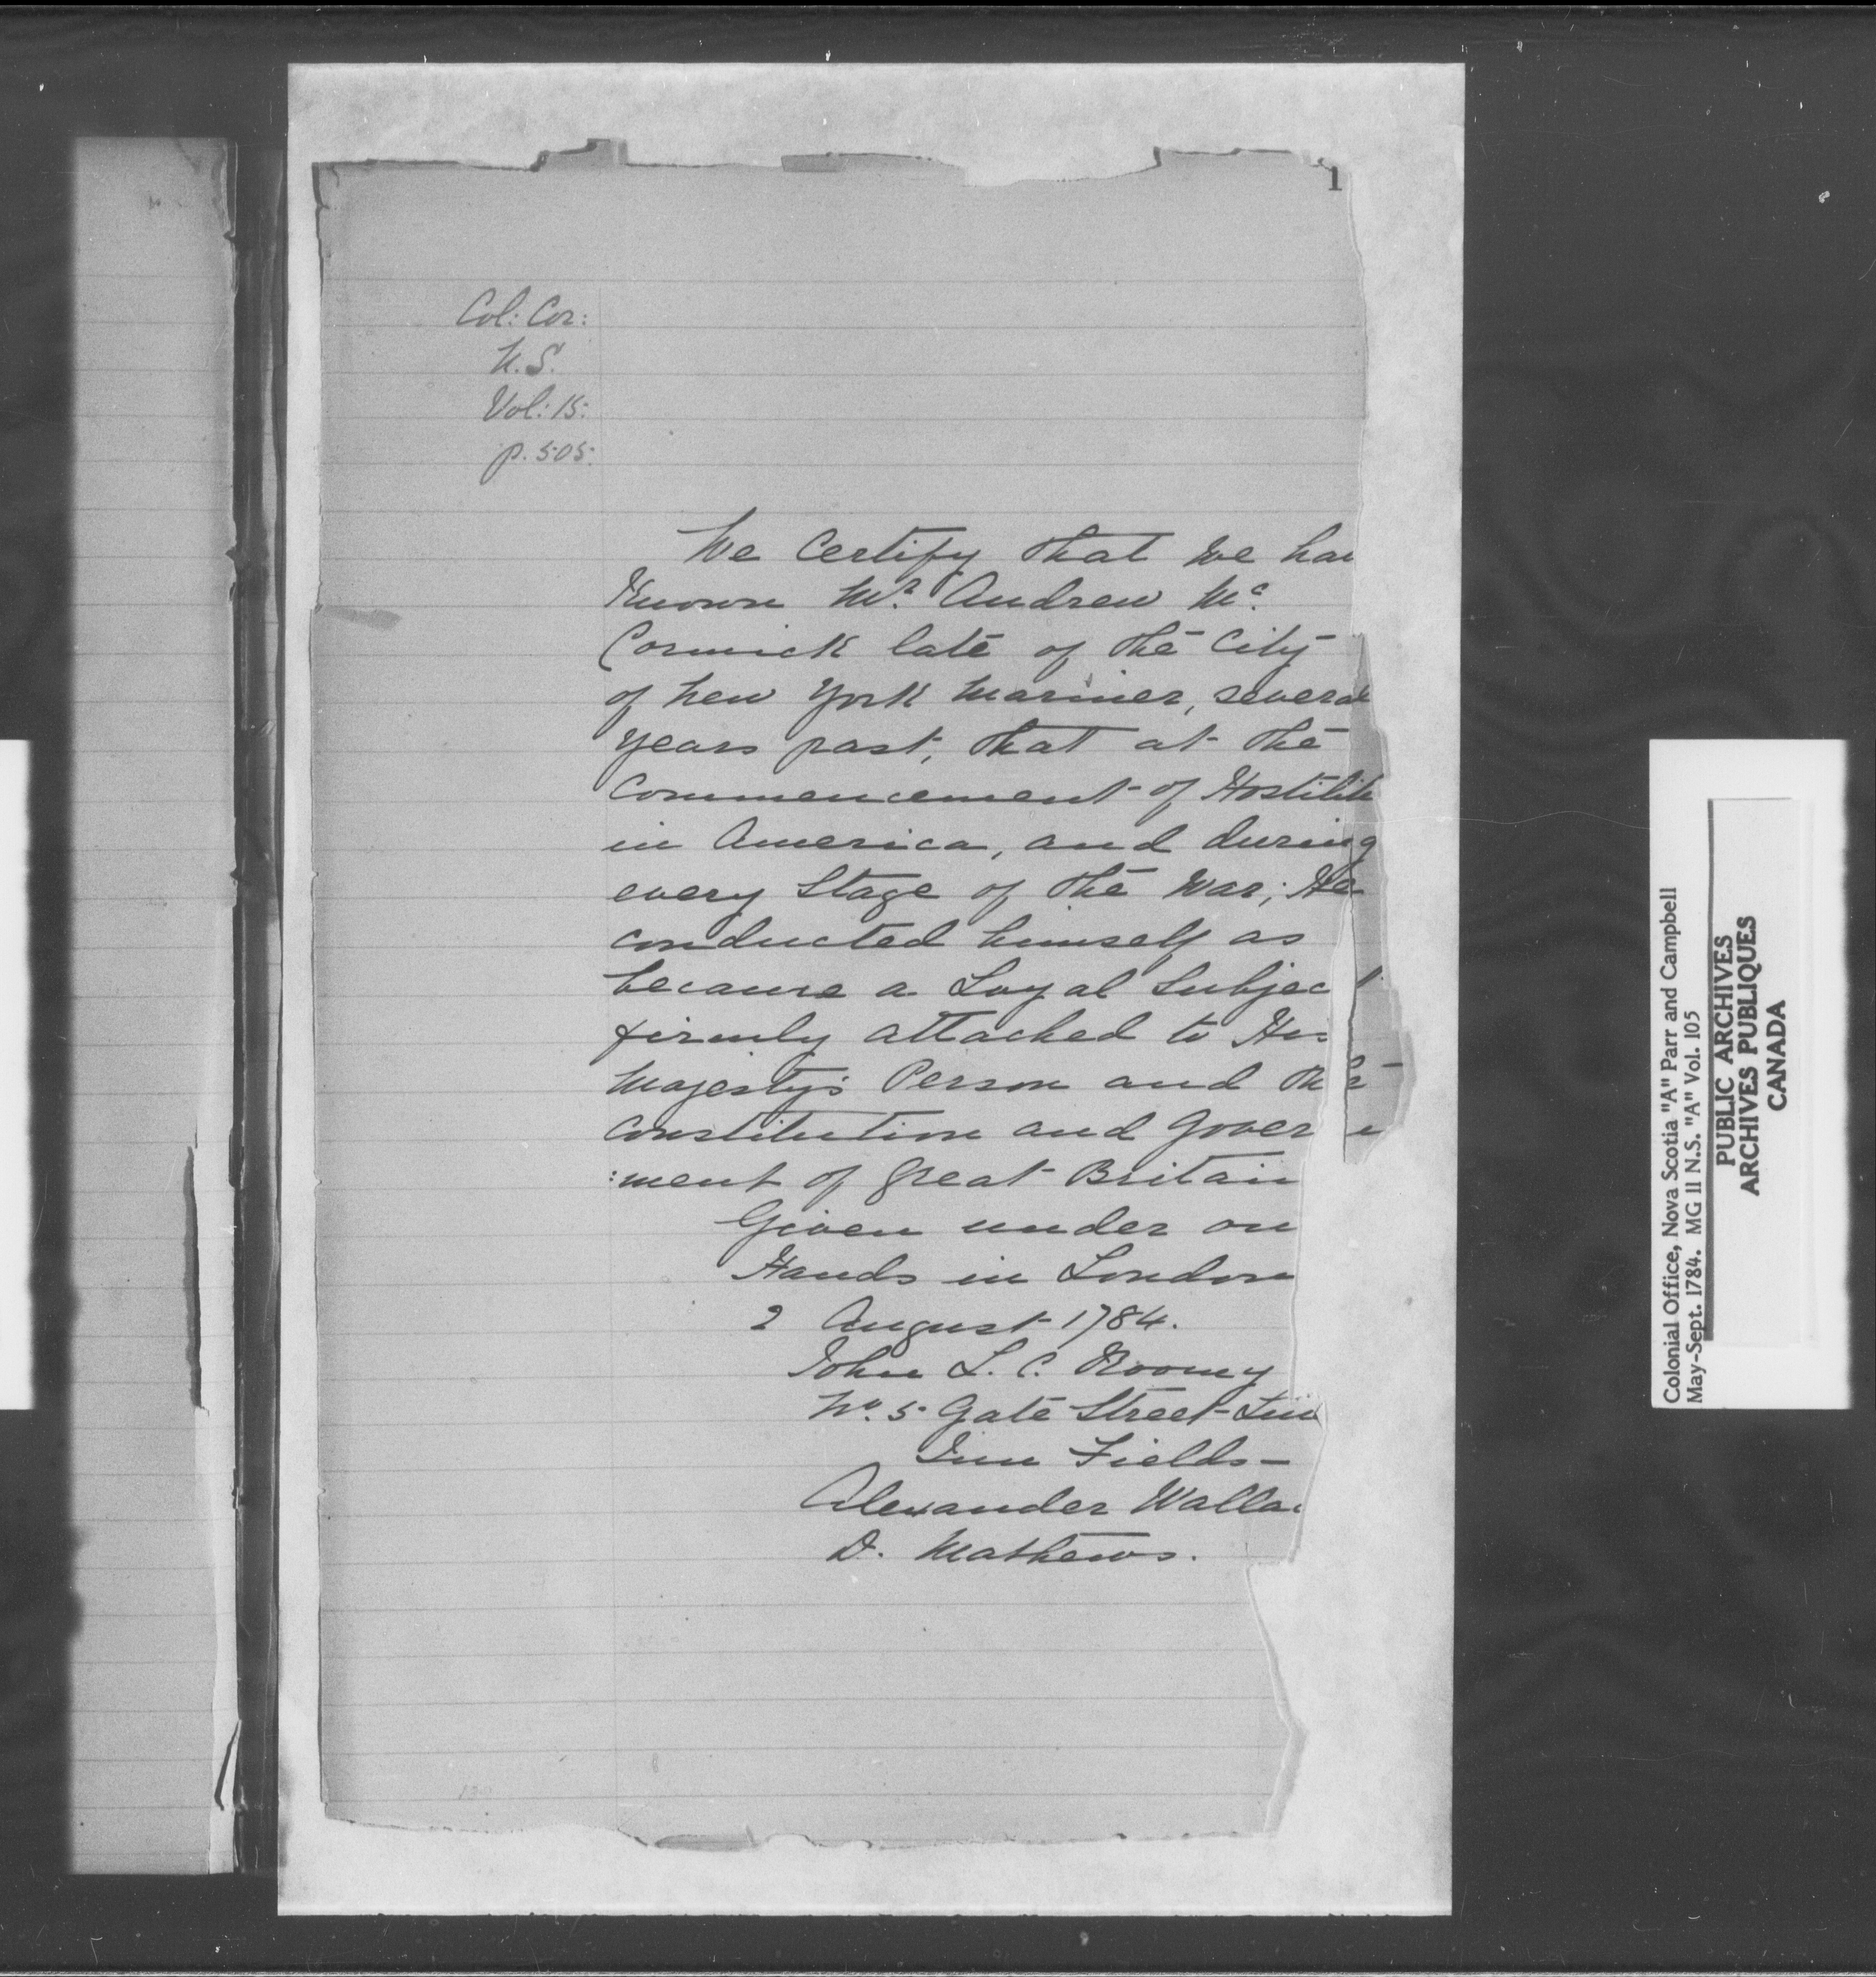 1
Col: Cor:
N.S.
Vol: 15:
p. 505:
We Certify that we hav
Known Mr. Andrew Mc.
Cormick late of the City
of New York Mariner, several
years past, that at the
Commencement of Hostiliti
in America, and during
every Stage of the War; He
conducted himself as
became a Loyal Subject
firmly attached to His
Majesty's Person and the
Constitution and Govern
:ment of Great Britain
Given under ou
Hands in London
2 August 1784.
John L. C. Roomy
No. 5 Gate Street Linc
Inn Fields—
Alexander Wallac
D. Mathews.
Colonial Office, Nova Scotia "A" Parr and Campbell
May-Sept. 1784. MG 11 N.S. "A" Vol. 105
PUBLIC ARCHIVES
ARCHIVES PUBLIQUES
CANADA